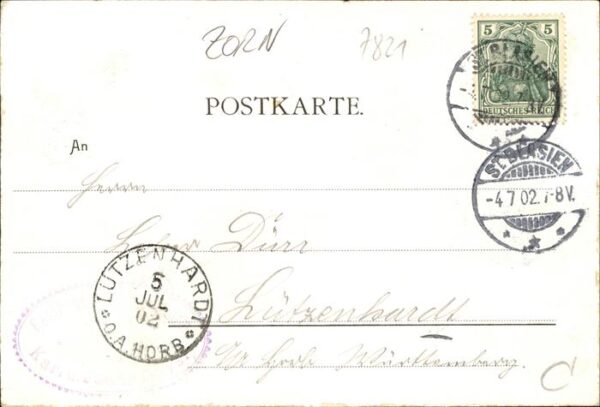 ZORN 7821
5 5
DEUTSCHES REICH
ST. BLASIEN
POSTKARTE.
An
ST. BLASIEN
-4.7.02.7-8V.
Herrn
Lehrer Dürr
LÜTZENHARDT
5
JUL
02
O.A. HORB
Lützenhardt
O/A Horb Württemberg.
C